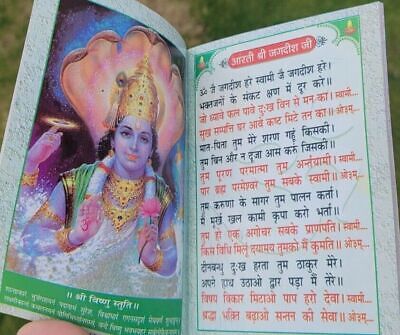 ॥ श्री विष्णु स्तुति ॥
आरती श्री जगदीश जी
ॐ जै जगदीश हरे स्वामी जै जगदीश हरे।
भक्तजनों के संकट क्षण में दूर करे॥
जो ध्यावे फल पावे दुःख विन से मन का। स्वामी...
सुख सम्पत्ति घर आवे कष्ट मिटे तन का। ओ३म्...
मात-पिता तुम मेरे शरण गहूं किसकी।
तुम बिन और न दूजा आस करूं जिसकी॥
तुम पूरण परमात्मा तुम अन्तर्यामी। स्वामी...
पार ब्रह्म परमेश्वर तुम सबके स्वामी। ओ३म्...
तुम करुणा के सागर तुम पालन कर्ता।
मैं मूर्ख खल कामी कृपा करो भर्ता।
तुम हो एक अगोचर सबके प्राणपति। स्वामी...
किस विधि मिलूं दयामय तुमको मैं कुमति॥ ओ३म्...
दीनबन्धु दुःख हरता तुम ठाकुर मेरे।
अपने हाथ उठाओ द्वार पड़ा मैं तेरे।
विषय विकार मिटाओ पाप हरो देवा। स्वामी...
श्रद्धा भक्ति बढ़ाओ सन्तन की सेवा। ओ३म्...